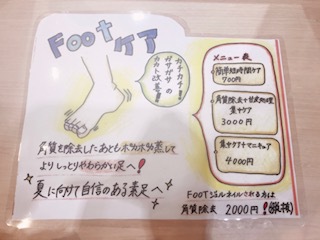 Footケア
ガチガチ!
ガサガサの
カカト改善!!
メニュー表
簡単短時間ケア
700円
角質除去+甘皮処理
集中ケア
3000円
集中ケア+マニキュア
4000円
角質を除去したあともホカホカ蒸して
よりしっとりやわらかい足へ!
夏に向けて自信のある素足へ
FOOTジェルネイルされる方は
角質除去 2000円!